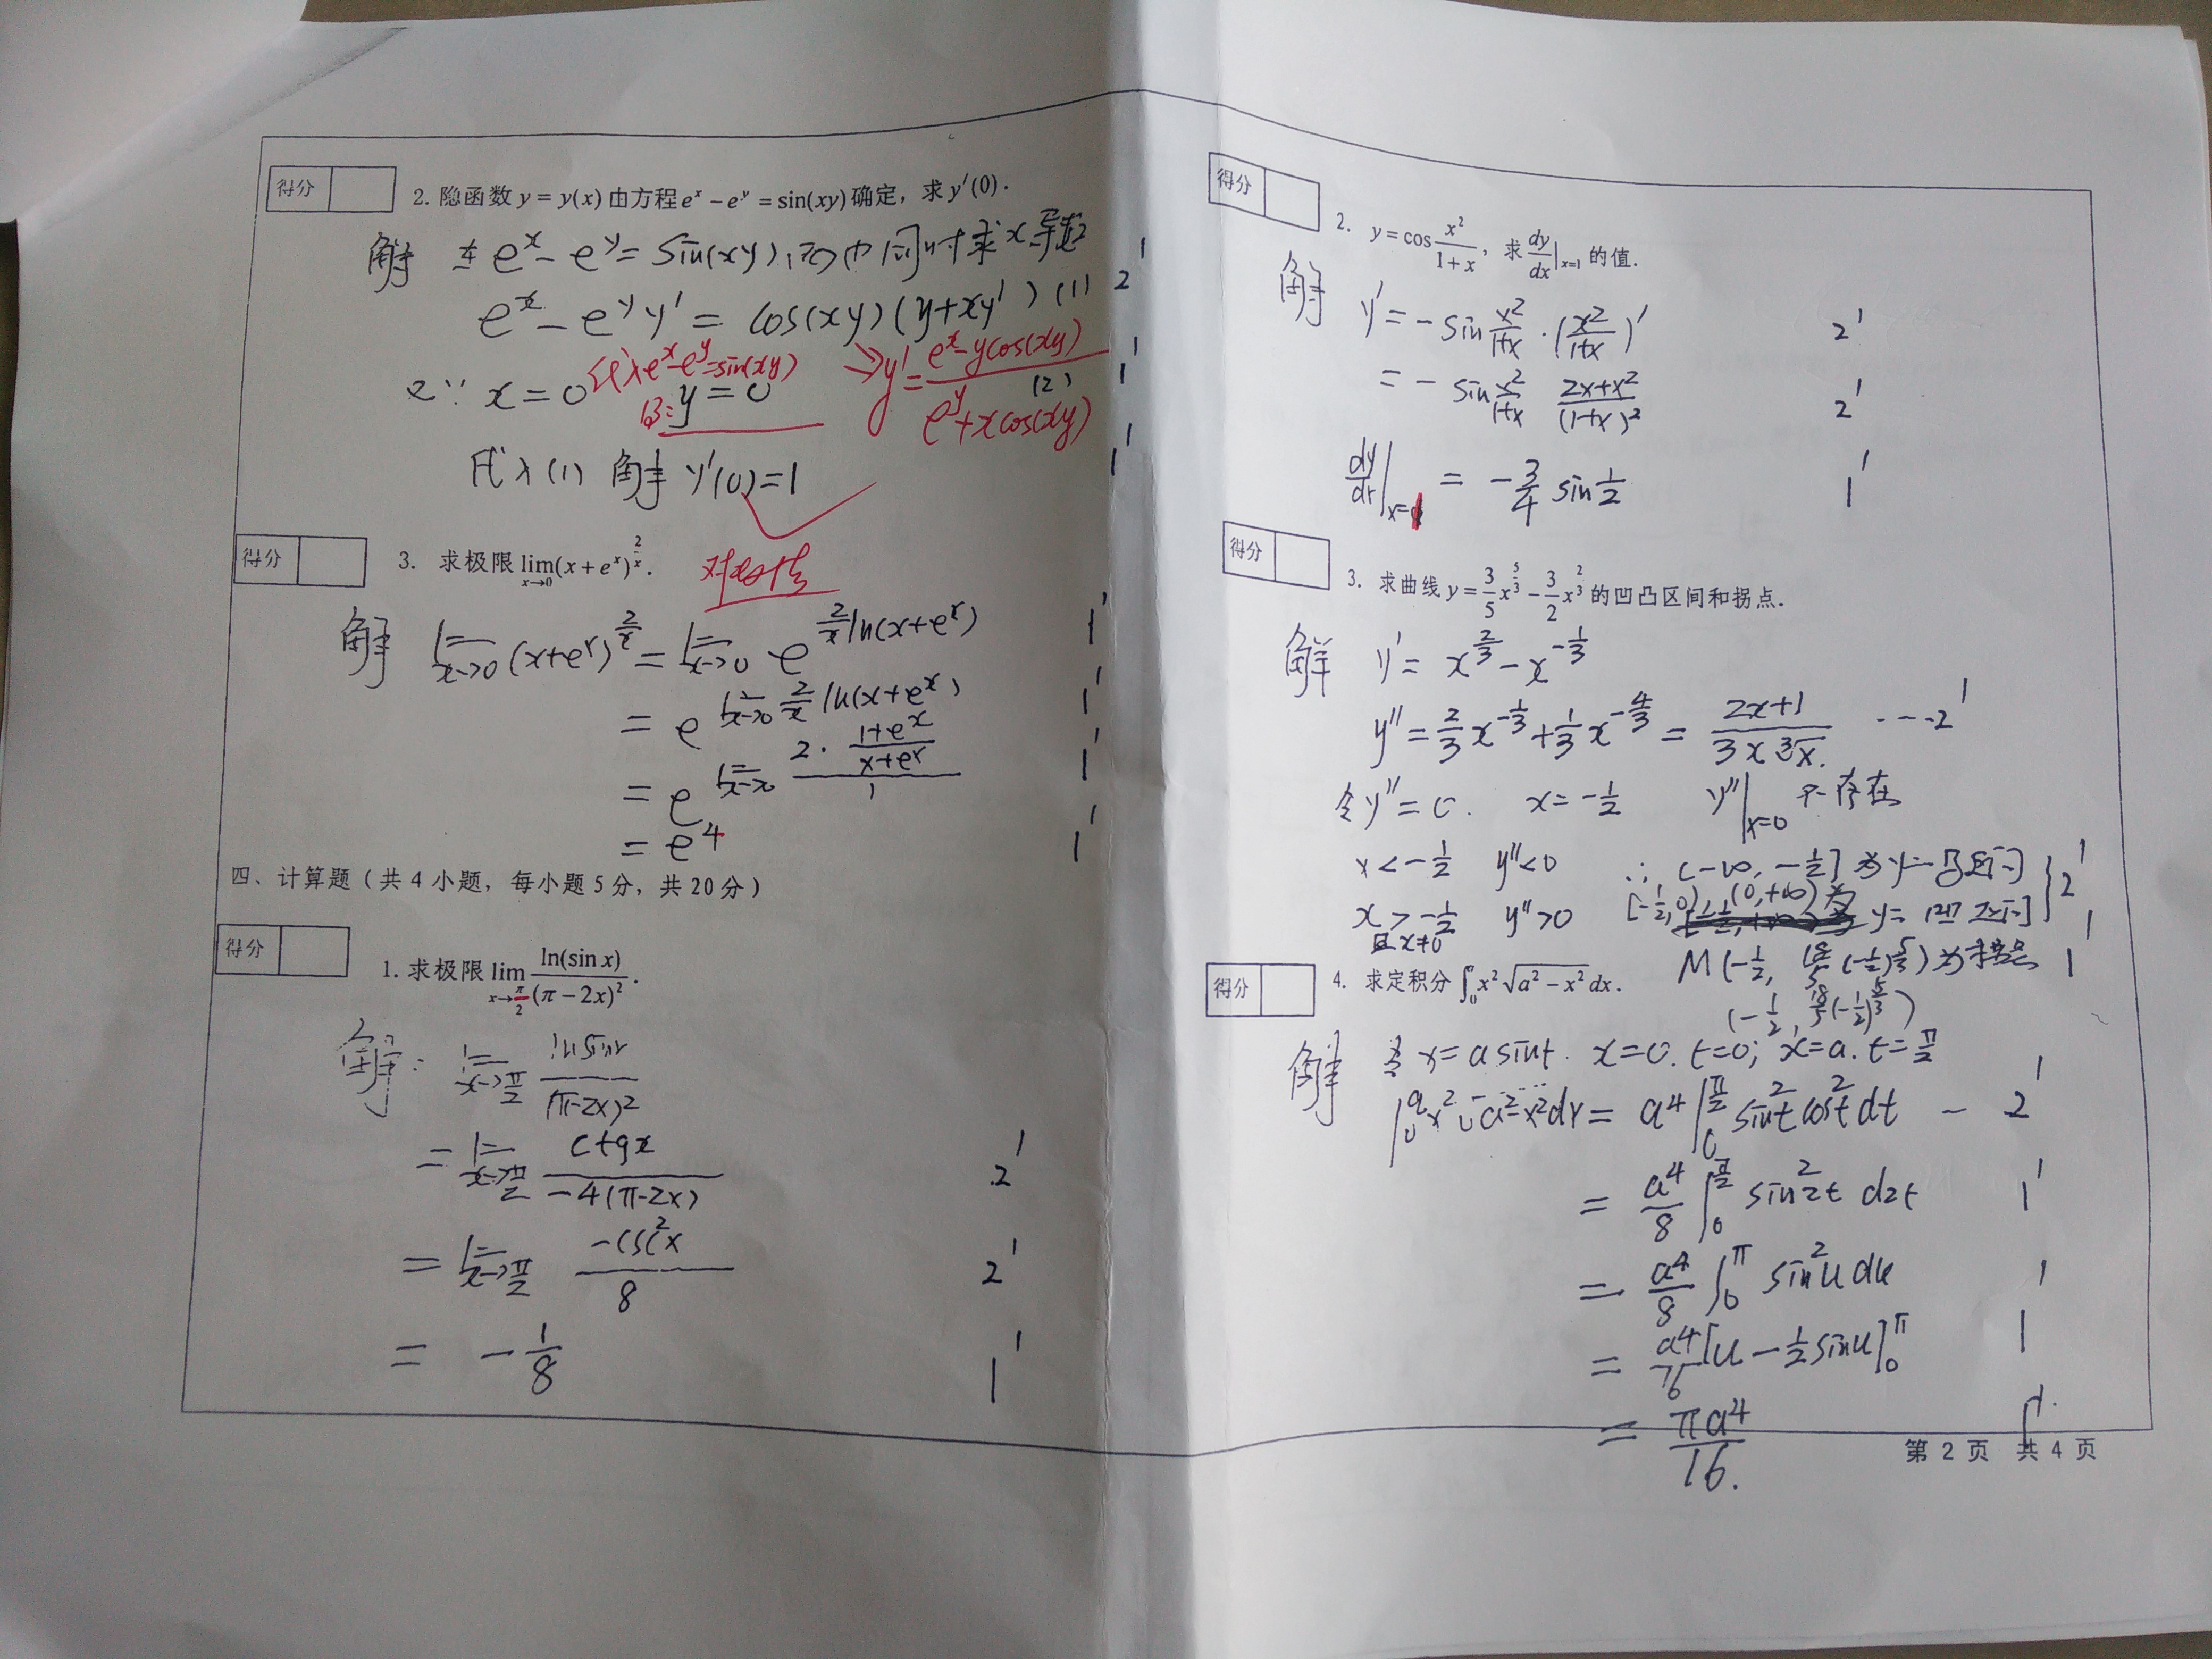 得分
2. 隐函数 y = y(x) 由方程 e^x − e^y = sin(xy) 确定，求 y′(0).
解 在 e^x − e^y = sin(xy) 同时求 x 导 1′
e^x − e^y y′ = cos(xy)(y+xy′) (1) 2
代入 e^x−e^y=sin(xy) ⇒ y′ = (e^x − y cos(xy)) / (e^y + x cos(xy)) (2) 1′
∵ x = 0 得: y = 0 1
代入(1) 解 y′(0)=1 1′
得分
3. 求极限 lim_{x→0} (x + e^x)^{2/x}.
解 lim_{x→0} (x+e^x)^{2/x} = lim_{x→0} e^{2/x ln(x+e^x)} 1′
= e^{lim_{x→0} 2/x ln(x+e^x)} 1′
= e^{lim_{x→0} (2· (1+e^x)/(x+e^x)) / 1} 1′
= e^4 1′
四、计算题（共 4 小题，每小题 5 分，共 20 分）
得分
1. 求极限 lim_{x→π/2} ln(sin x) / (π − 2x)^2.
解: lim_{x→π/2} ln sinx / (π−2x)^2
= lim_{x→π/2} ctgx / −4(π−2x) 2′
= lim_{x→π/2} −csc^2x / 8 2′
= −1/8 1′
得分
2. y = cos x^2/(1+x), 求 dy/dx|_{x=1} 的值.
解 y′ = −sin x^2/(1+x) · (x^2/(1+x))′ 2′
= − sin x^2/(1+x) (2x+x^2)/(1+x)^2 2′
dy/dx|_{x=1} = −3/4 sin 1/2 1′
得分
3. 求曲线 y = 3/5 x^{5/3} − 3/2 x^{2/3} 的凹凸区间和拐点.
解 y′ = x^{2/3} − x^{−1/3}
y″ = 2/3 x^{−1/3} + 1/3 x^{−4/3} = (2x+1) / (3x∛x). ---2′
令 y″ = 0. x = −1/2 y″|_{x=0} 不存在
x < −1/2 y″<0 ∴ (−∞, −1/2] 为 y= 凸区间 2′
x > −1/2 y″>0 [−1/2, 0), (0, +∞) 为 y= 凹区间
且 x≠0
M(−1/2, 18/5 (−1/2)^{5/3}) 为拐点 1′
(−1/2, 18/5 (−1/2)^{5/3})
得分
4. 求定积分 ∫_0^a x^2 √(a^2 − x^2) dx.
解 令 x = a sint. x=0. t=0; x=a. t=π/2
∫_0^a x^2 √(a^2−x^2) dx = a^4 ∫_0^{π/2} sin^2t cos^2t dt − 2′
= a^4/8 ∫_0^{π/2} sin^2 2t d2t 1′
= a^4/8 ∫_0^π sin^2 u du 1
= a^4/16 [u − 1/2 sinu]_0^π 1
= πa^4/16.
第 2 页 共 4 页